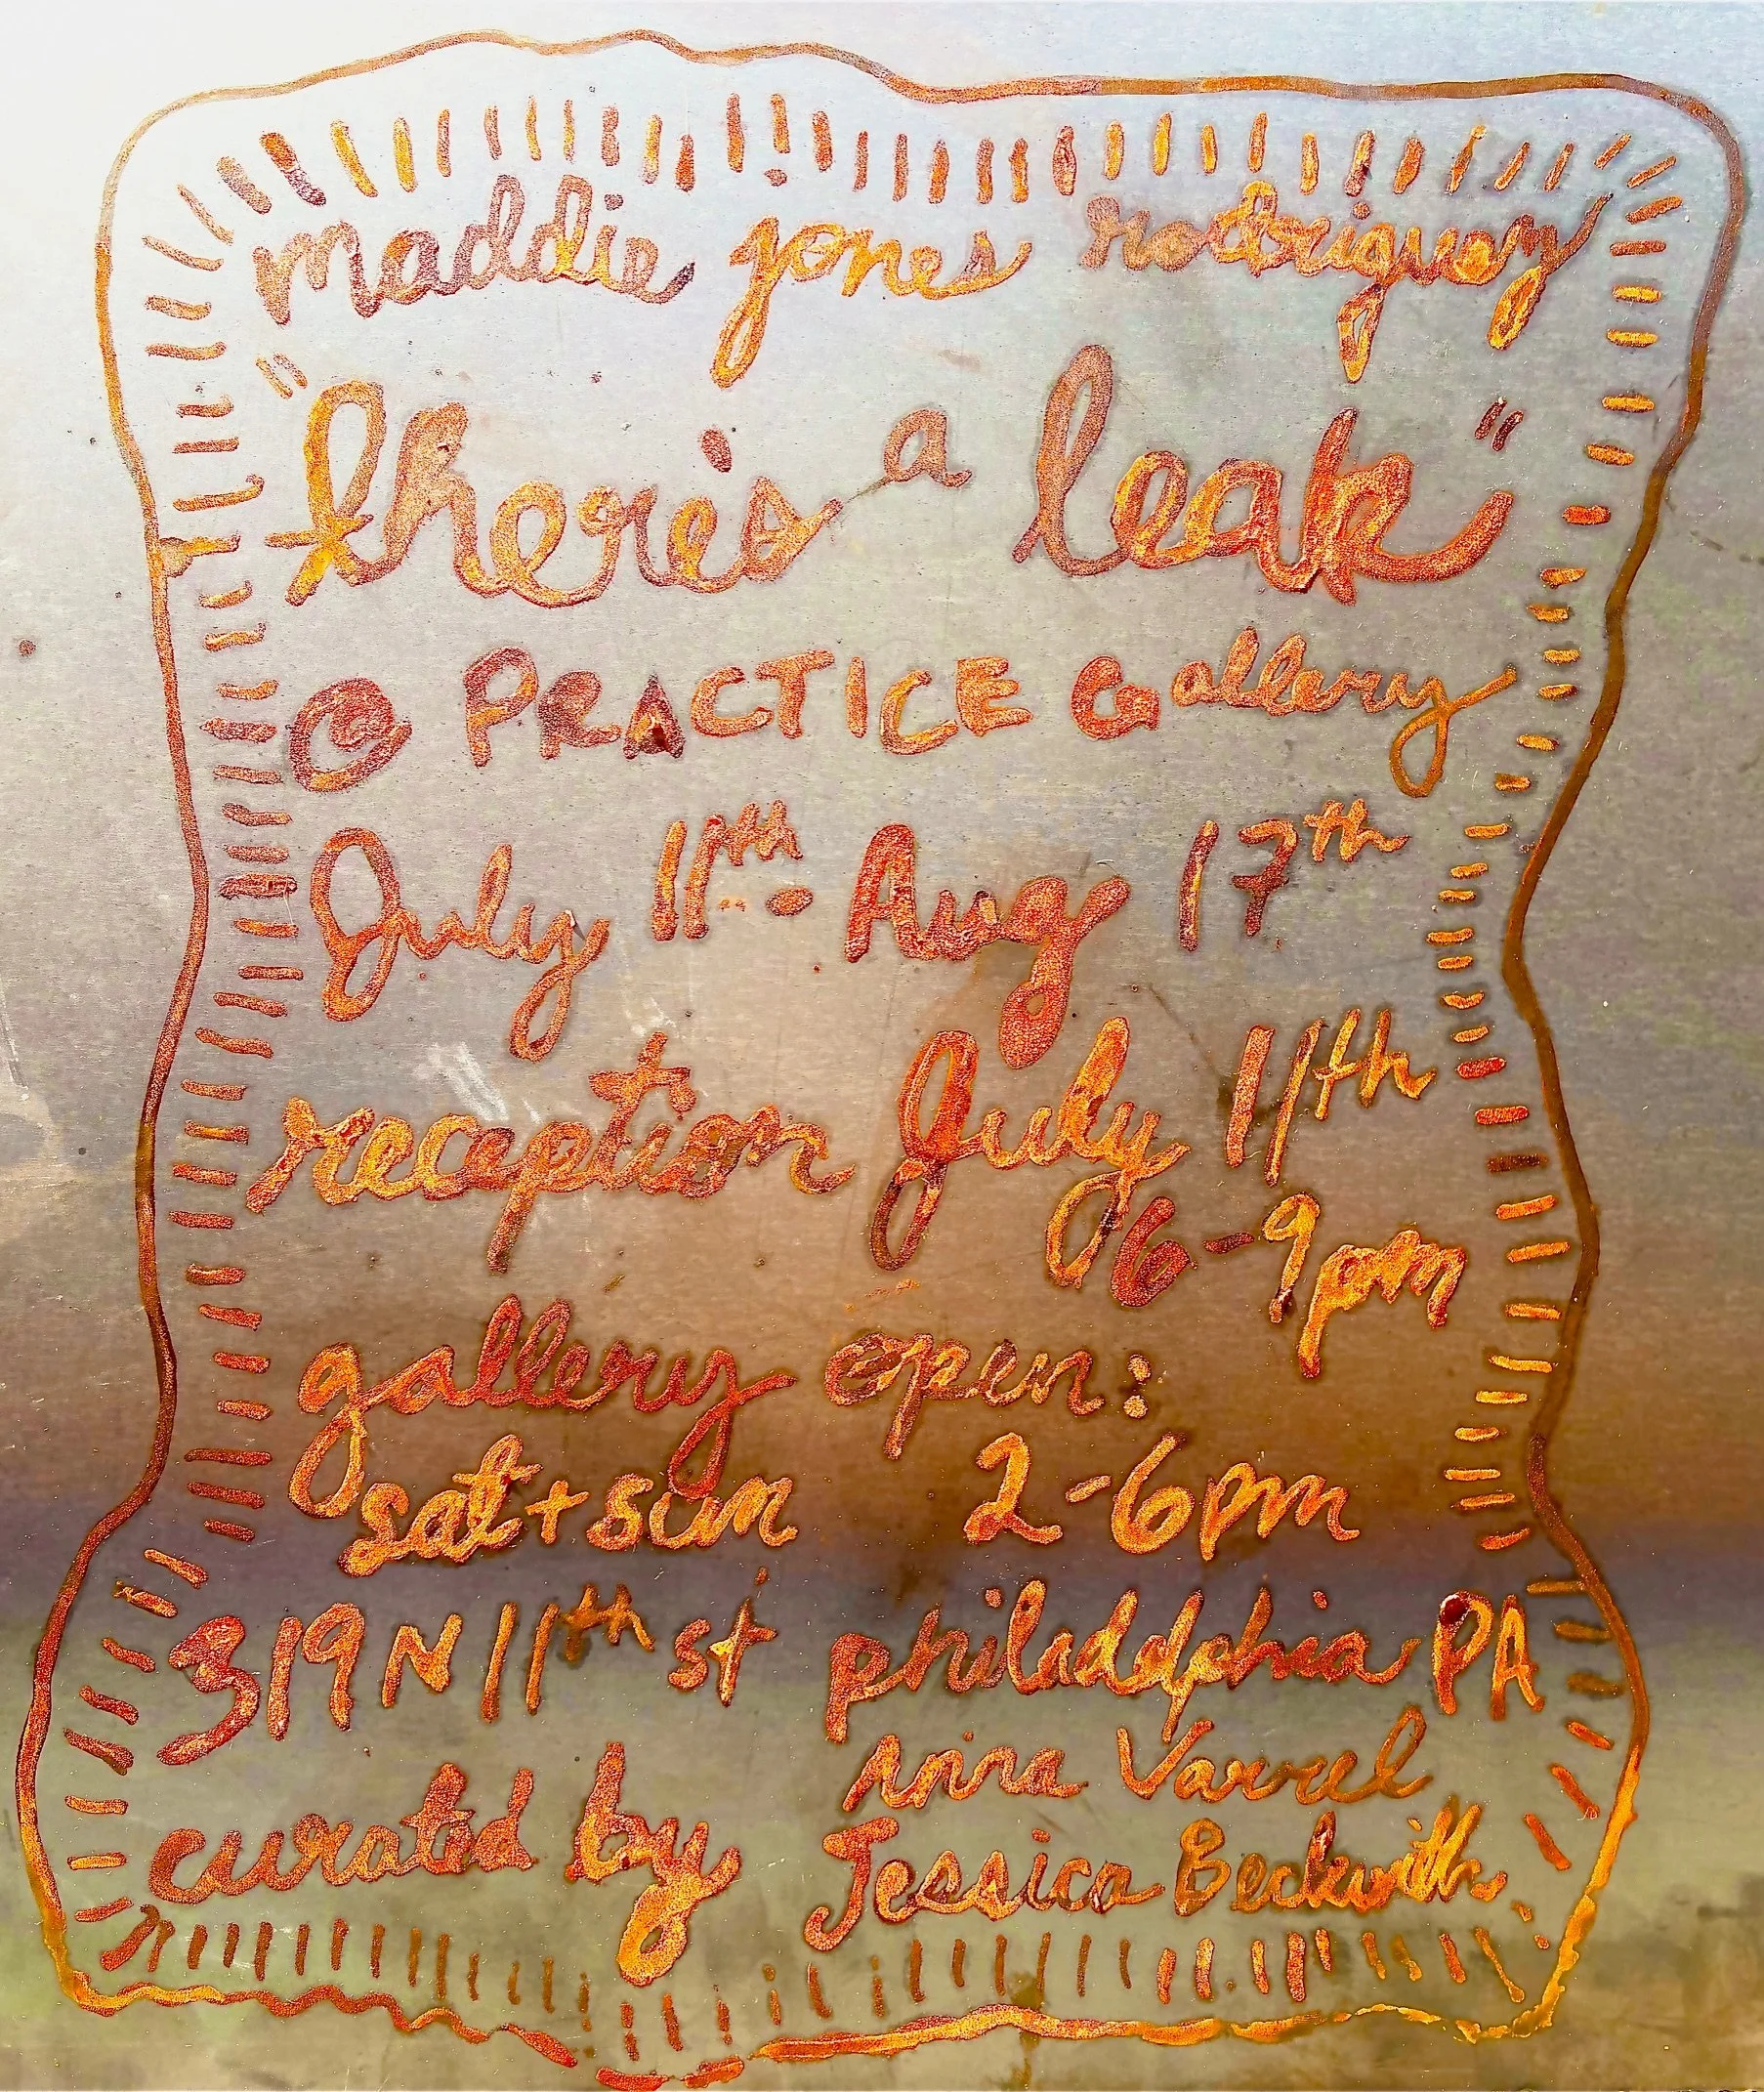 maddie jones rodriguez
"there's a leak"
@ PRACTICE Gallery
July 11th - Aug 17th
reception July 11th
6-9pm
gallery open:
sat + sun 2-6pm
319 N 11th st philadelphia PA
curated by
Anna Varrel
Jessica Beckwith